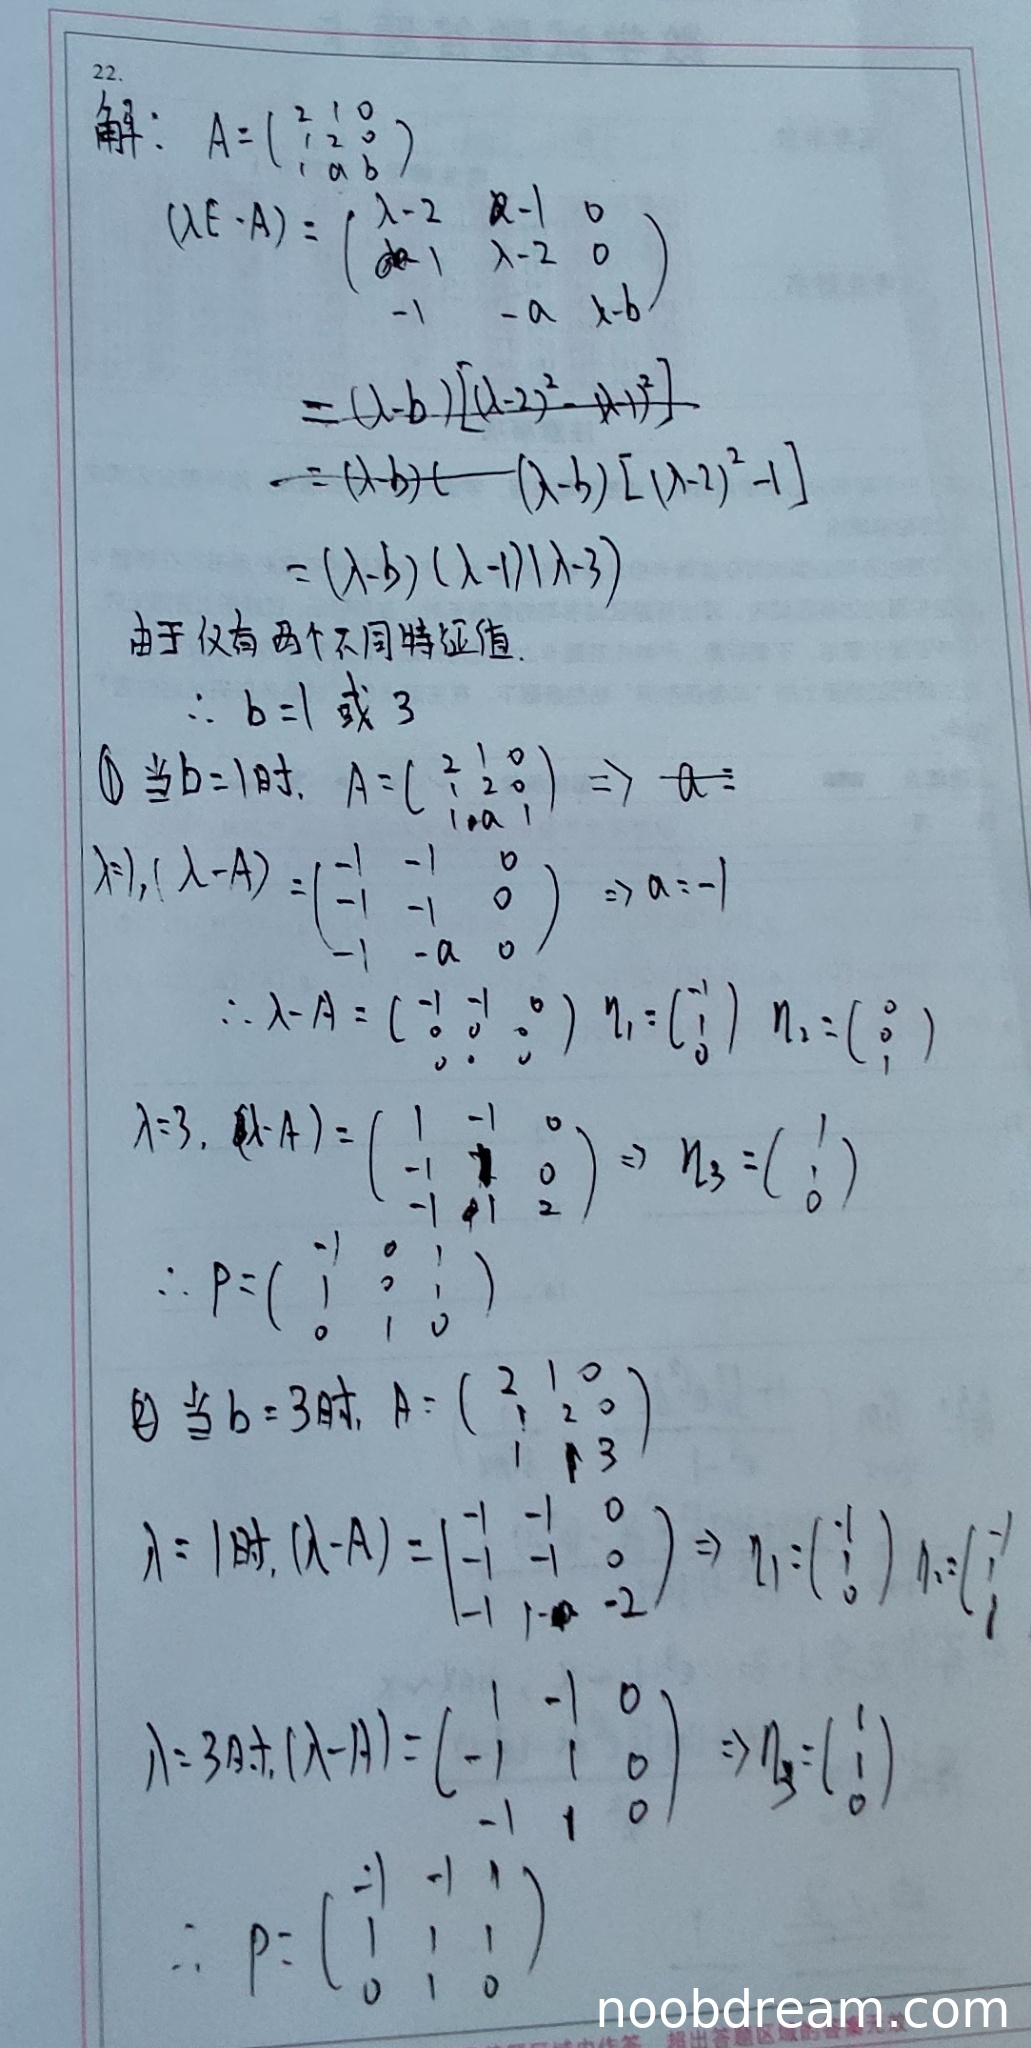 22.
解: A=(2 1 0
1 2 0
1 a b)
(λE-A) = (λ-2 -1 0
-1 λ-2 0
-1 -a λ-b)
=(λ-b)[(λ-2)²-(λ-1)²]
=(λ-b)( (λ-b)[(λ-2)²-1]
=(λ-b)(λ-1)(λ-3)
由于仅有两个不同特征值.
∴ b=1 或 3
① 当b=1时, A=(2 1 0
1 2 0
1 a 1) => a=
λ=1, (λ-A) =(-1 -1 0
-1 -1 0
-1 -a 0) => a=-1
∴ λ-A = (-1 -1 0
0 0 0
0 0 0) η₁=(-1
1
0) η₂=(0
0
1)
λ=3, (λ-A)=(1 -1 0
-1 1 0
-1 1 2) => η₃=(1
1
0)
∴ P=(-1 0 1
1 0 1
0 1 0)
② 当b=3时, A=(2 1 0
1 2 0
1 1 3)
λ=1时, (λ-A)=(-1 -1 0
-1 -1 0
-1 1 -2) => η₁=(-1
1
0) η₂=(-1
1
1
λ=3时, (λ-A)=(1 -1 0
-1 1 0
-1 1 0) => η₃=(1
1
0)
∴ P=(-1 -1 1
1 1 1
0 1 0)
noobdream.com
超出答题区域的答案无效